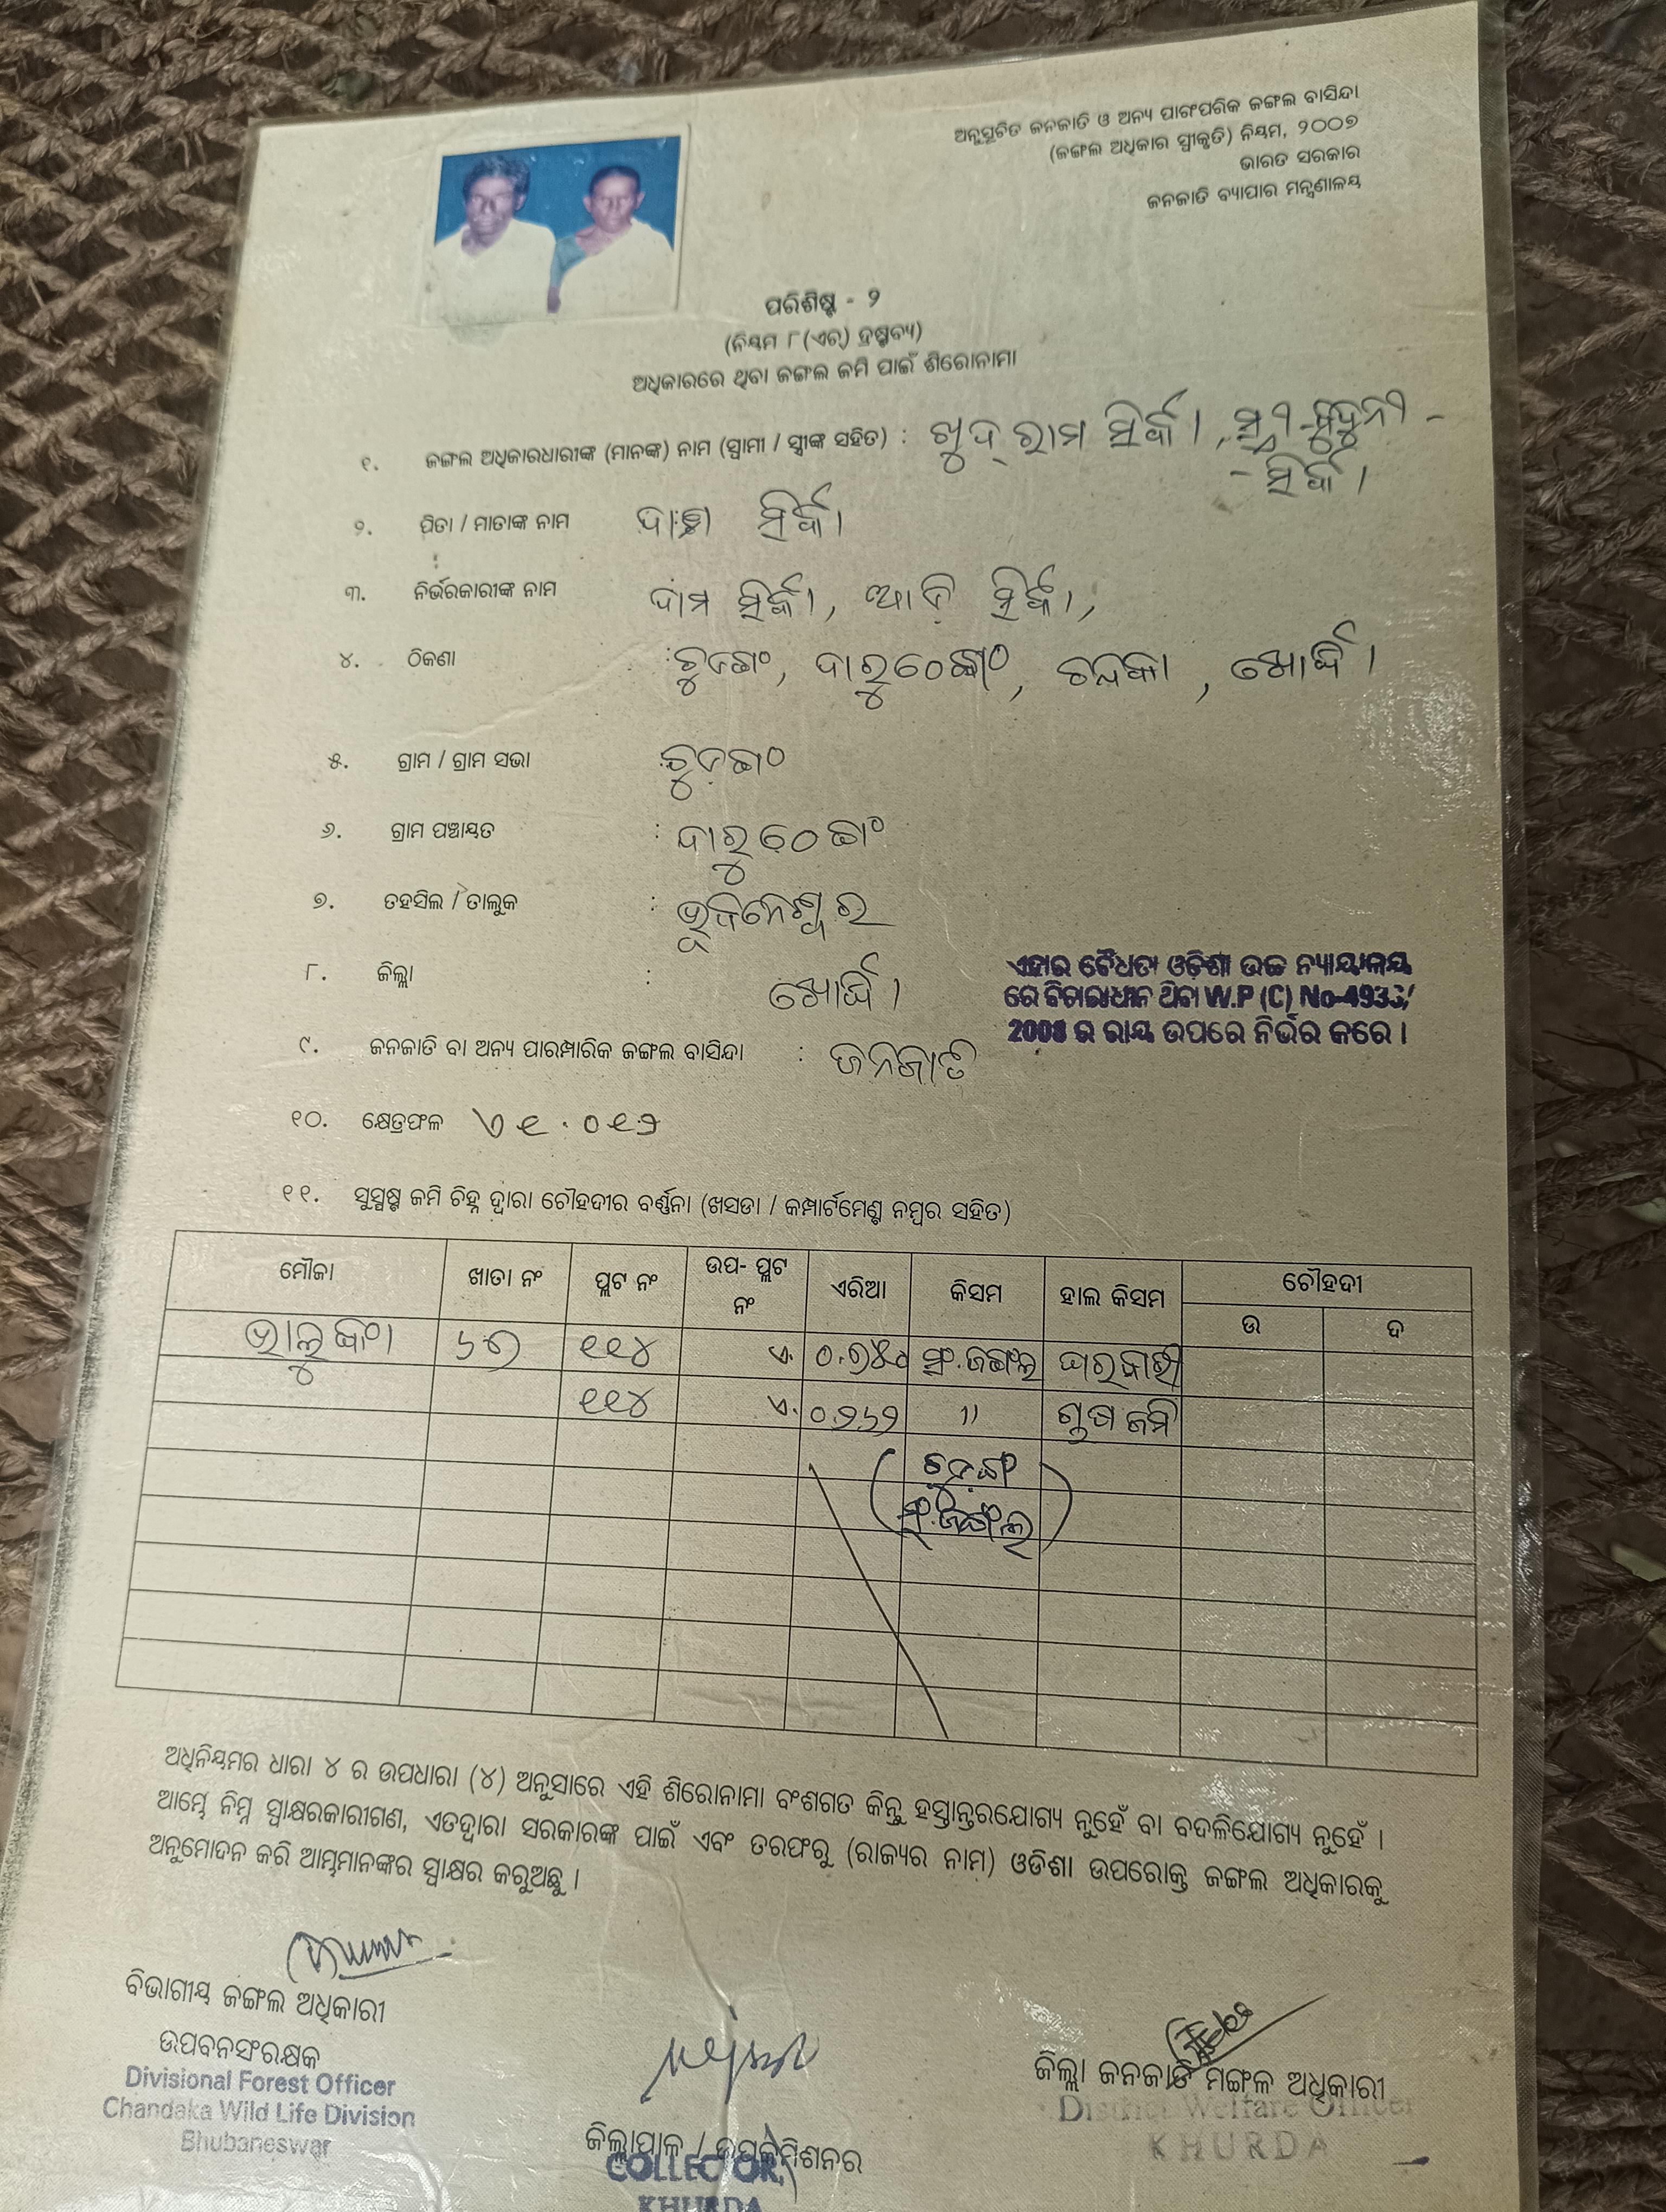 ଅନୁସୂଚିତ ଜନଜାତି ଓ ଅନ୍ୟ ପାରଂପରିକ ଜଙ୍ଗଲ ବାସିନ୍ଦା
(ଜଙ୍ଗଲ ଅଧିକାର ସ୍ୱୀକୃତି) ନିୟମ, ୨୦୦୭
ଭାରତ ସରକାର
ଜନଜାତି ବ୍ୟାପାର ମନ୍ତ୍ରଣାଳୟ
ପରିଶିଷ୍ଟ - ୨
(ନିୟମ ୮(ଏଚ୍) ଦ୍ରଷ୍ଟବ୍ୟ)
ଅଧିକାରରେ ଥିବା ଜଙ୍ଗଲ ଜମି ପାଇଁ ଶିରୋନାମା
୧. ଜଙ୍ଗଲ ଅଧିକାରଧାରୀଙ୍କ (ମାନଙ୍କ) ନାମ (ସ୍ୱାମୀ / ସ୍ତ୍ରୀଙ୍କ ସହିତ) : ଖୁଦ୍‌ରାମ
୨. ପିତା / ମାତାଙ୍କ ନାମ
୩. ନିର୍ଭରକାରୀଙ୍କ ନାମ
୪. ଠିକଣା : ଚୁଡଙ୍ଗ, ଦାରୁଠେଙ୍ଗ, ଚନ୍ଦକା, ଖୋର୍ଦ୍ଧା
୫. ଗ୍ରାମ / ଗ୍ରାମ ସଭା :
୬. ଗ୍ରାମ ପଞ୍ଚାୟତ : ଦାରୁଠେଙ୍ଗ
୭. ତହସିଲ / ତାଲୁକ : ଭୂବନେଶ୍ୱର
୮. ଜିଲ୍ଲା : ଖୋର୍ଦ୍ଧା
ଏହାର ବୈଧତା ଓଡ଼ିଶା ଉଚ୍ଚ ନ୍ୟାୟାଳୟ
ରେ ବିଚାରାଧୀନ ଥିବା W.P (C) No-4933/
2008 ର ରାୟ ଉପରେ ନିର୍ଭର କରେ ।
୯. ଜନଜାତି ବା ଅନ୍ୟ ପାରମ୍ପାରିକ ଜଙ୍ଗଲ ବାସିନ୍ଦା : ଜନଜାତି
୧୦. କ୍ଷେତ୍ରଫଳ
୧୧. ସୁସ୍ପଷ୍ଟ ଜମି ଚିହ୍ନ ଦ୍ୱାରା ଚୌହଦୀର ବର୍ଣ୍ଣନା (ଖସଡା / କମ୍ପାର୍ଟମେଣ୍ଟ ନମ୍ବର ସହିତ)
ମୌଜା ଖାତା ନଂ ପ୍ଲଟ ନଂ ଉପ- ପ୍ଲଟ ନଂ ଏରିଆ କିସମ ହାଲ କିସମ ଚୌହଦୀ
ଉ ଦ
୧୧୪ ଏ. ଘରବାରି
୧୧୪ ଏ. ୦.୨୬୨ " ଚାଷ ଜମି
ଅଧିନିୟମର ଧାରା ୪ ର ଉପଧାରା (୪) ଅନୁସାରେ ଏହି ଶିରୋନାମା ବଂଶଗତ କିନ୍ତୁ ହସ୍ତାନ୍ତରଯୋଗ୍ୟ ନୁହେଁ ବା ବଦଳିଯୋଗ୍ୟ ନୁହେଁ ।
ଆମ୍ଭେ ନିମ୍ନ ସ୍ୱାକ୍ଷରକାରୀଗଣ, ଏତଦ୍ୱାରା ସରକାରଙ୍କ ପାଇଁ ଏବଂ ତରଫରୁ (ରାଜ୍ୟର ନାମ) ଓଡିଶା ଉପରୋକ୍ତ ଜଙ୍ଗଲ ଅଧିକାରକୁ
ଅନୁମୋଦନ କରି ଆମ୍ଭମାନଙ୍କର ସ୍ୱାକ୍ଷର କରୁଅଛୁ ।
ବିଭାଗୀୟ ଜଙ୍ଗଲ ଅଧିକାରୀ
ଉପବନସଂରକ୍ଷକ
Divisional Forest Officer
Chandaka Wild Life Division
Bhubaneswar
ଜିଲ୍ଲାପାଳ / ଉପକମିଶନର
COLLECTOR,
KHURDA
ଜିଲ୍ଲା ଜନଜାତି ମଙ୍ଗଳ ଅଧିକାରୀ
District Welfare Officer
KHURDA